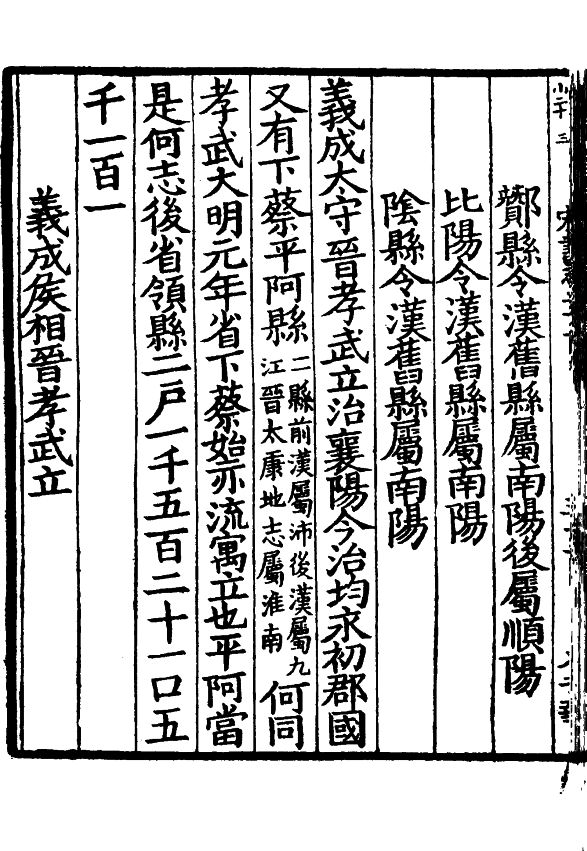 酇縣令漢舊縣屬南陽後屬順陽
比陽令漢舊縣屬南陽
陰縣令漢舊縣屬南陽
義成太守晉孝武立治襄陽今治均永初郡國
又有下蔡平阿縣二縣前漢屬沛後漢屬九江晉太康地志屬淮南何同
孝武大明元年省下蔡始亦流寓立也平阿當
是何志後省領縣二戶一千五百二十一口五
千一百一
義成侯相晉孝武立